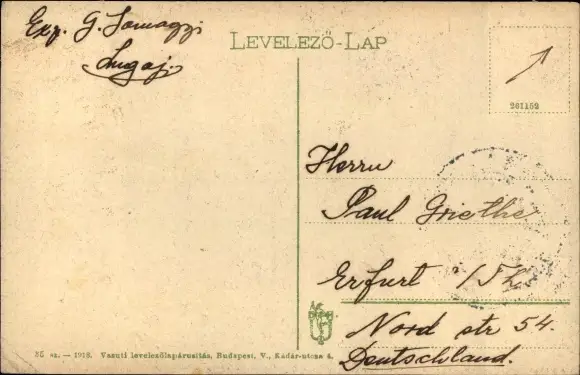 Exp. G. Somogyi
Lugoj.
LEVELEZŐ-LAP
261159
Herrn
Paul Griethe
Erfurt i/Th.
Nord str 54.
Deutschland.
35 sz. — 1918. Vasuti levelezőlapárusitás, Budapest, V., Kádár-utcza 4.